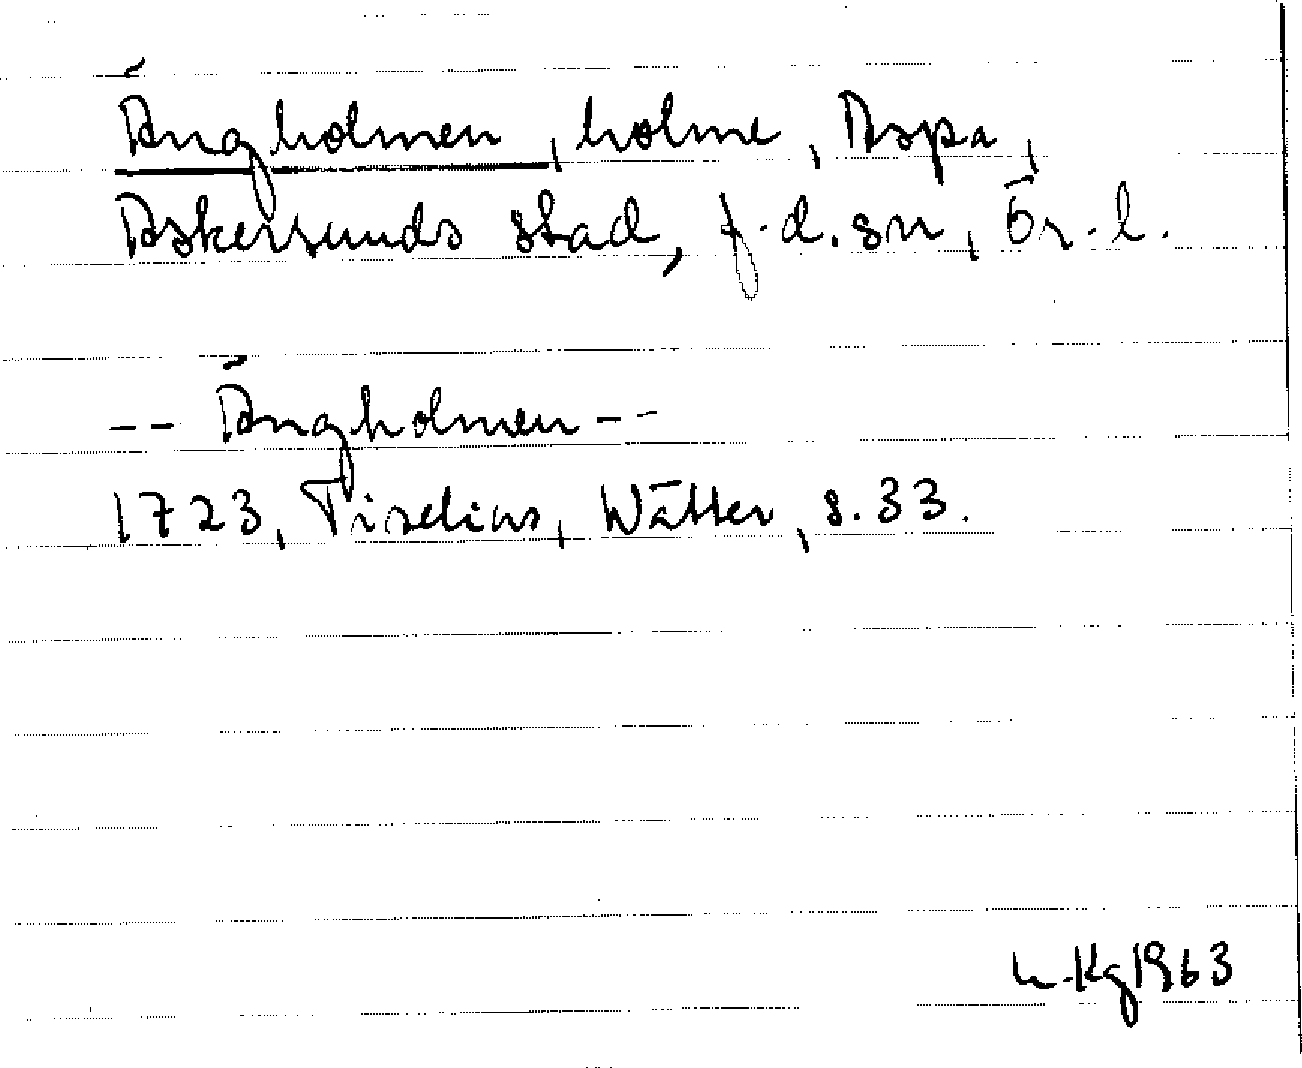 Ängholmen, holme, Aspa,
Askersunds stad, f.d.sn, Ör.l.
-- Ängholmen --
1723, Tiselius, Wätter, s.33.
1963